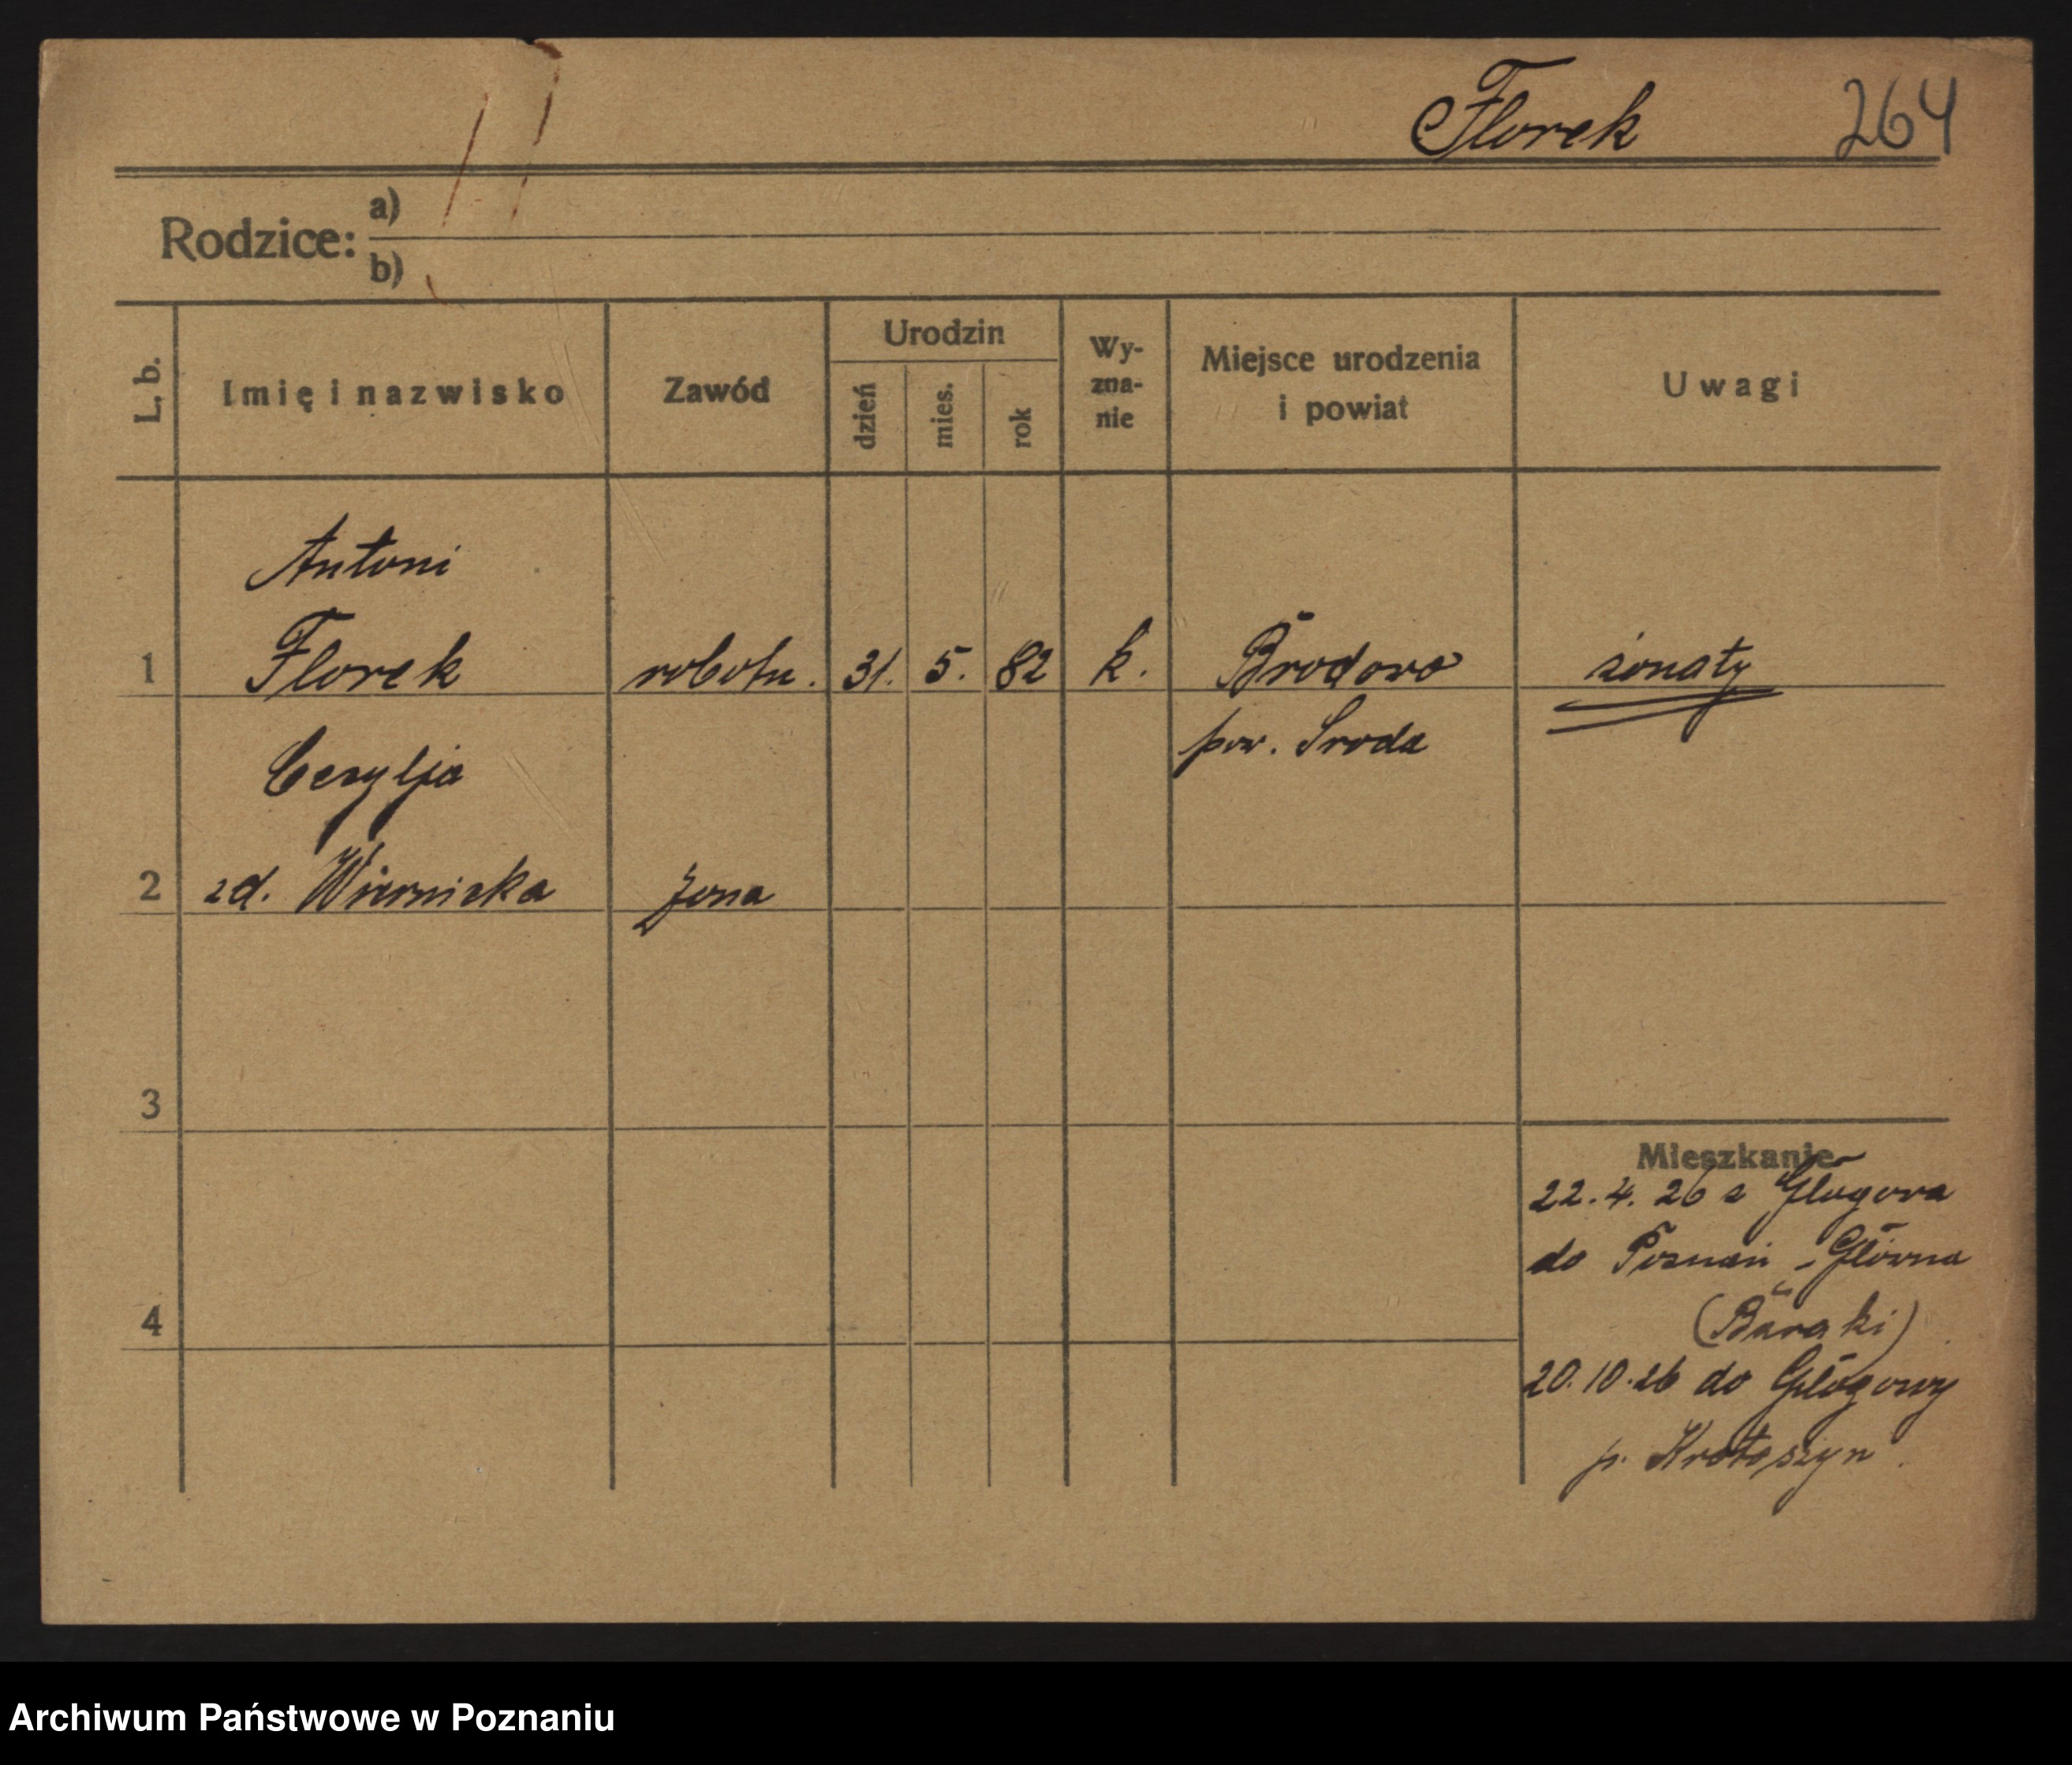 Florek 264
Rodzice: a)
b)
L. b.
Imię i nazwisko
Zawód
Urodzin
dzień
mies.
rok
Wy-
zna-
nie
Miejsce urodzenia
i powiat
Uwagi
Antoni
1 Florek robotn. 31. 5. 82 k. Brodowo żonaty
pow. Sroda
Cezylja
2 zd. Wiernicka żona
3
4
Mieszkanie
22. 4. 26 z Glogowa
do Poznań - Główna
(Baraki)
20. 10. 26 do Glogowy
p. Krotoszyn.
Archiwum Państwowe w Poznaniu